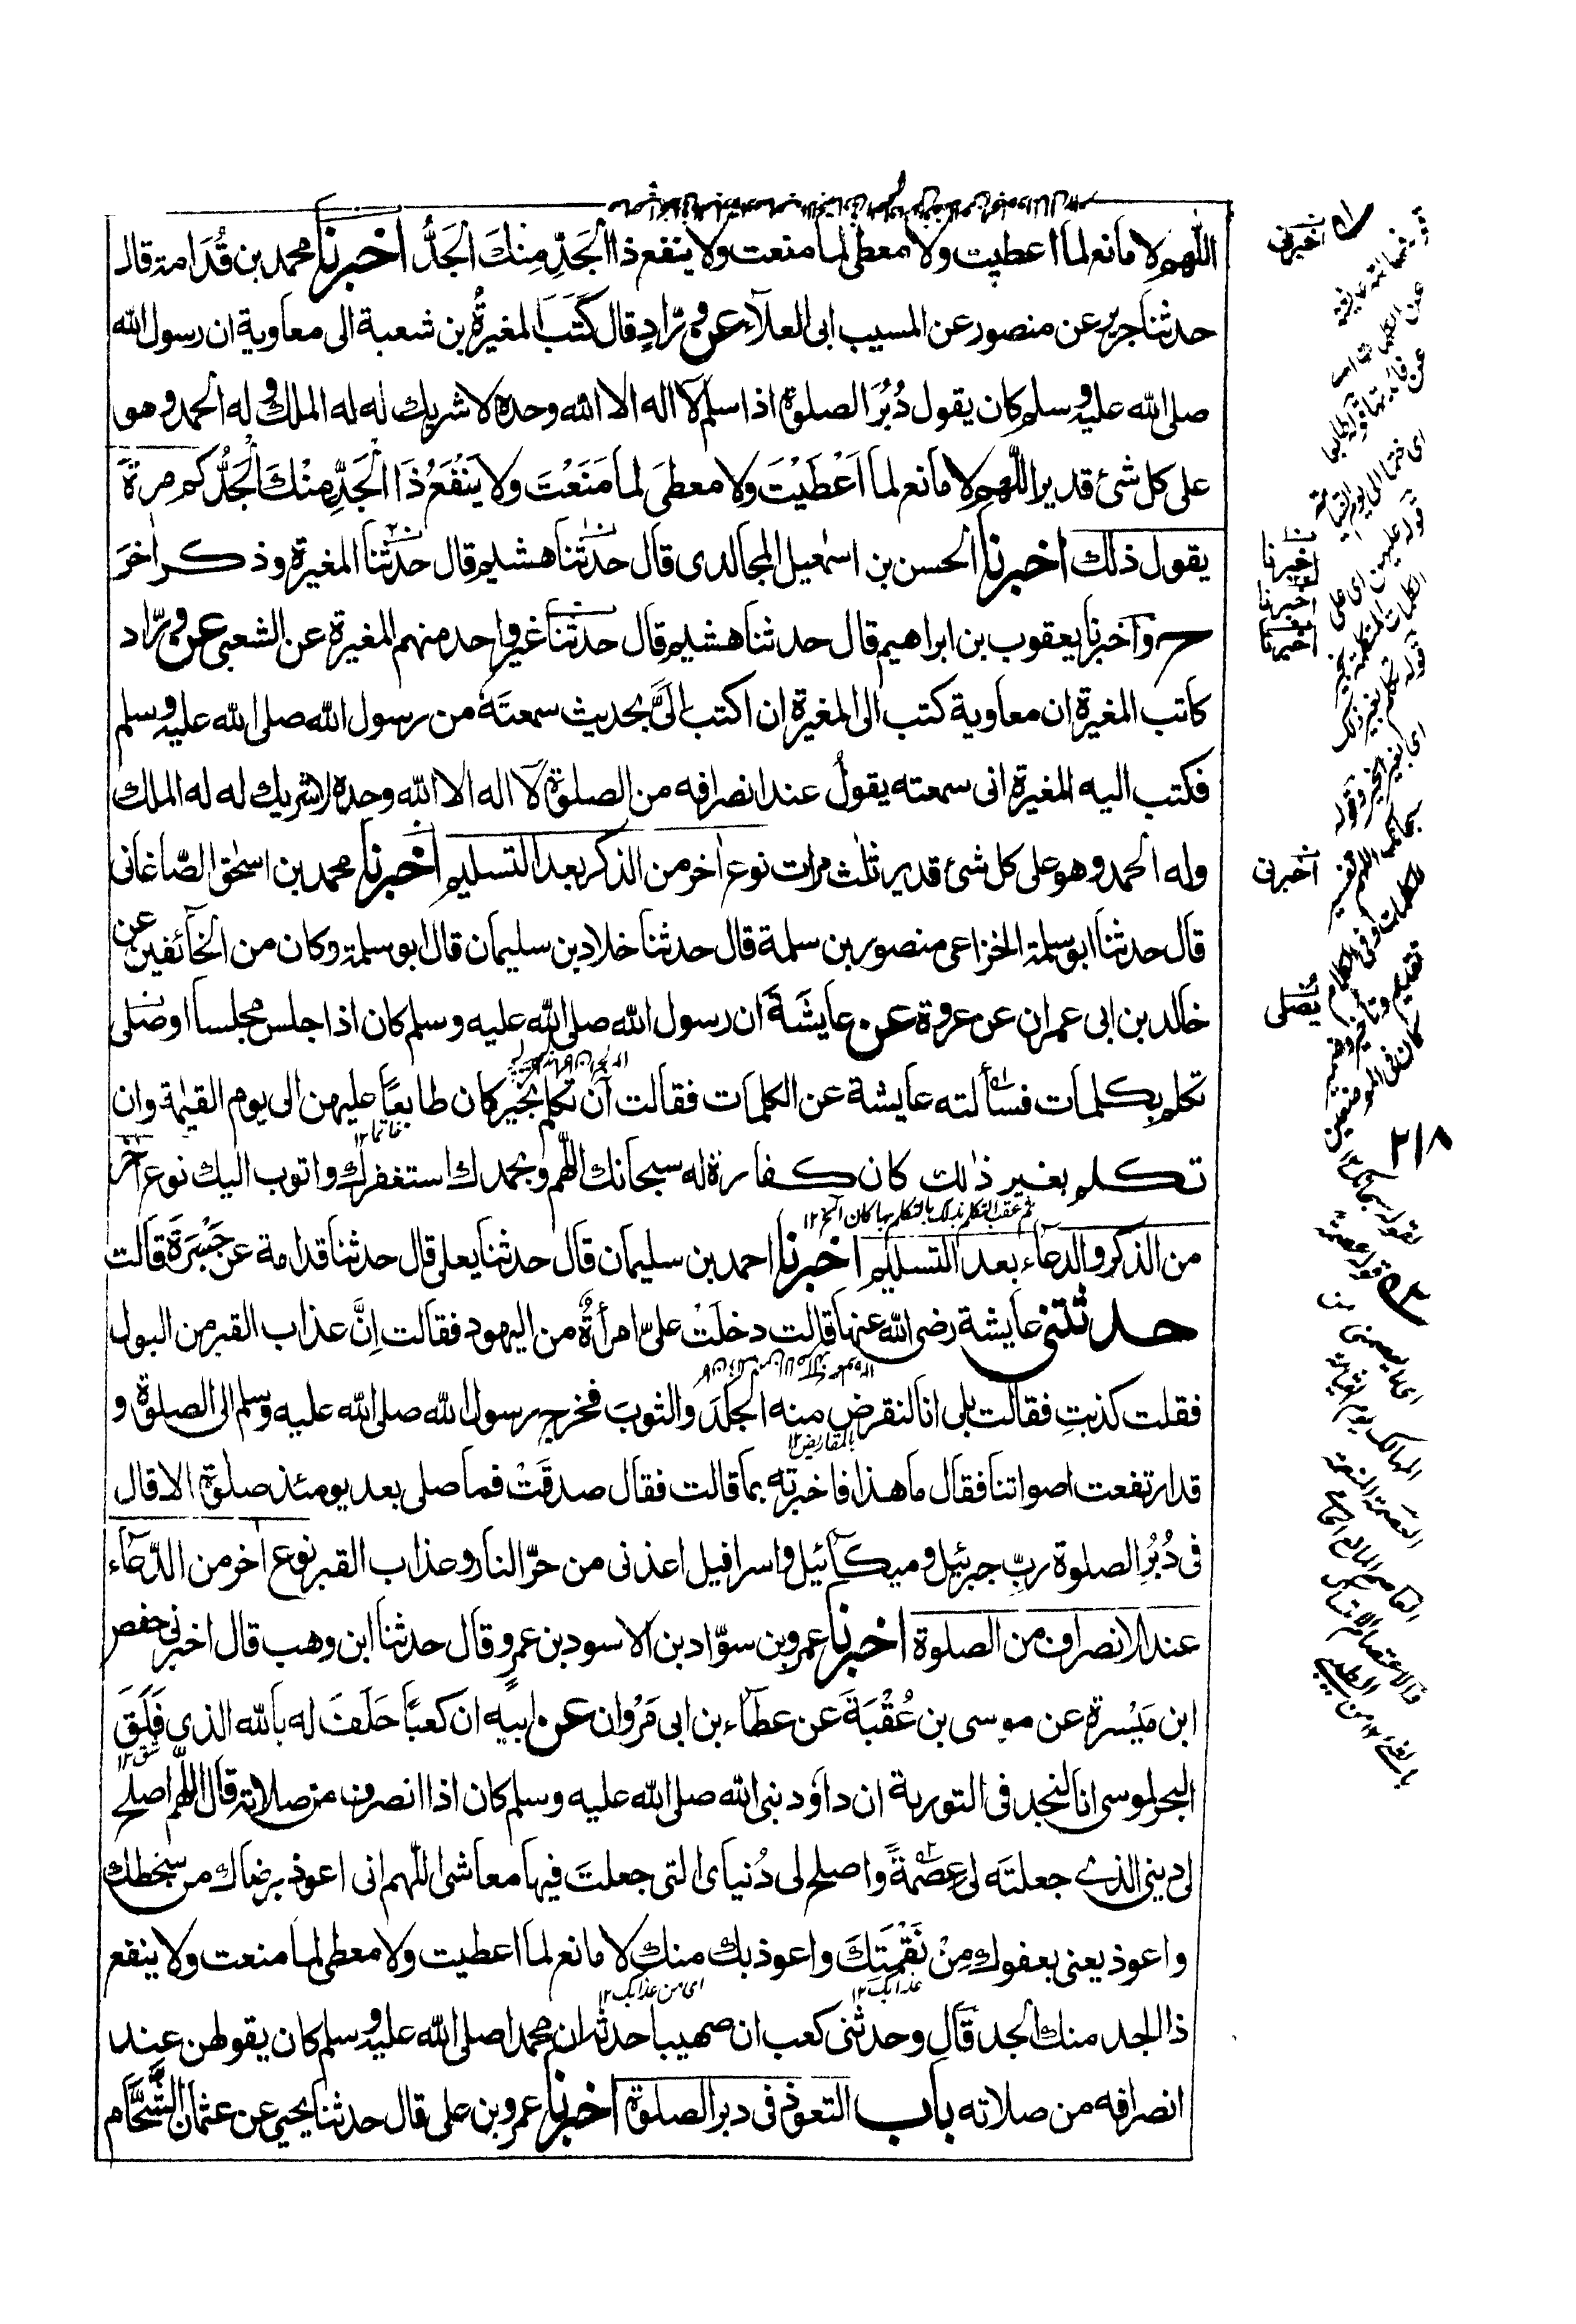 اللهم لا مانع لما اعطيت ولا معطى لما منعت ولا ينفع ذا الجَدِّ مِنكَ الجَدُّ اخبرنا محمد بن قُدَامة قال
حدثنا جرير عن منصور عن المسيب ابى العلآء عن ورّادٍ قال كَتَبَ المغيرةُ بن شعبة الى معاوية ان رسول الله
صلى الله عليه وسلم كان يقول دُبُرَ الصلوة اذا سلم لآ اله الا الله وحده لا شريك له له الملك وله الحمد وهو
على كل شئ قدير اللّهم لا مانع لما اَعْطَيْتَ ولا معطىَ لما مَنَعْتَ ولا يَنْفَعُ ذَا الْجَدِّ مِنْكَ الْجَدُّ كم مرةً
يقول ذلك اخبرنا الحسن بن اسمٰعيل المجالدى قال حدثنا هشيم قال حدثنا المغيرة وذكر اٰخرَ
ح واخبرنا يعقوب بن ابراهيم قال حدثنا هشيم قال حدثنا غير واحد منهم المغيرة عن الشعبى عن ورّاد
كاتب المغيرة ان معاوية كتب الى المغيرة ان اكتب الىَّ بحديث سمعتَهُ من رسول الله صلى الله عليه وسلم
فكتب اليه المغيرة انى سمعته يقولُ عند انصرافه من الصلوة لآ اله الا الله وحده لا شريك له له الملك
وله الحمد وهو على كل شئ قدير ثلٰث مرات نوع اٰخر من الذكر بعد التسليم اخبرنا محمد بن اسحٰق الصّاغانى
قال حدثنا ابو سلمة الخزاعى منصور بن سلمة قال حدثنا خلاد بن سليمان قال ابو سلمة وكان من الخآئفين عن
خالد بن ابى عمران عن عروة عن عايشَةَ ان رسول الله صلى الله عليه وسلم كان اذا جلس مجلسا او صلى
تكلم بكلمات فسألته عايشة عن الكلمات فقالت اَن تكلم بخير كان طابعًا عليهن الى يوم القيٰمة وان
خاتما ١٢
تكلم بغير ذٰلك كان كفارة له سبحانك اللهم وبحمدك استغفرك واتوب اليك نوع اٰخر
ثم عقب التكلم بذلك بالتكلم بها كان الخ ١٢
من الذكر والدعآء بعد التسليم اخبرنا احمد بن سليمان قال حدثنا يعلى قال حدثنا قدامة عن جَسْرَةَ قالت
حدثتنى عايشة رضى الله عنها قالت دخلَتْ علىّ امرأةٌ من اليهود فقالت اِنَّ عذاب القبر من البول
فقلت كذبتِ فقالت بلى انا لنقرض منه الجلدَ والثوبَ فخرج رسول الله صلى الله عليه وسلم الى الصلوة و
بالمقاريض ١٢
قد ارتفعت اصواتنا فقال ما هذا فاخبرته بما قالت فقال صدقَتْ فما صلى بعد يومئذ صلوة الا قال
فى دُبُرِ الصلوة ربِّ جبرئيل وميكآئيل واسرافيل اعذنى من حرّ النار وعذاب القبر نوع اٰخر من الدّعآء
عند الانصراف من الصلوة اخبرنا عمرو بن سوّاد بن الاسود بن عمرو قال حدثنا ابن وهب قال اخبرنى حفص
ابن مَيْسرة عن موسى بن عُقْبَةَ عن عطآء بن ابى مَرْوان عن ابيه ان كعبًا حَلَفَ له بالله الذى فَلَقَ
شق ١٢
البحر لموسى انا لنجد فى التورية ان داوُد نبى الله صلى الله عليه وسلم كان اذا انصرف من صلاته قال اللهم اصلح
لى دينى الذى جعلتَه لى عِصْمةً واصلح لى دُنياى التى جعلتَ فيها معاشى اللّهم انى اعوذ برضاك من سخطك
واعوذ يعنى بعفوك مِنْ نَقْمَتِكَ واعوذ بك منك لا مانع لما اعطيت ولا معطى لما منعت ولا ينفع
عذابك ١٢ اى من عذابك ١٢
ذا الجد منك الجد قال وحدثنى كعب ان صهيبا حدثه ان محمدا صلى الله عليه وسلم كان يقولهن عند
انصرافه من صلاته باب التعوذ فى دبر الصلوة اخبرنا عمرو بن على قال حدثنا يحيى عن عثمان الشَّحَّام
اخبرنى
اخبرنا
اخبرنا
اخبرنا
اخبرنى
يُصلى